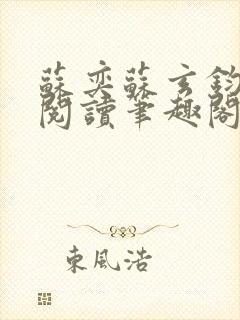 蘇奕蘇玄鈞
閱讀筆趣閣
東風浩